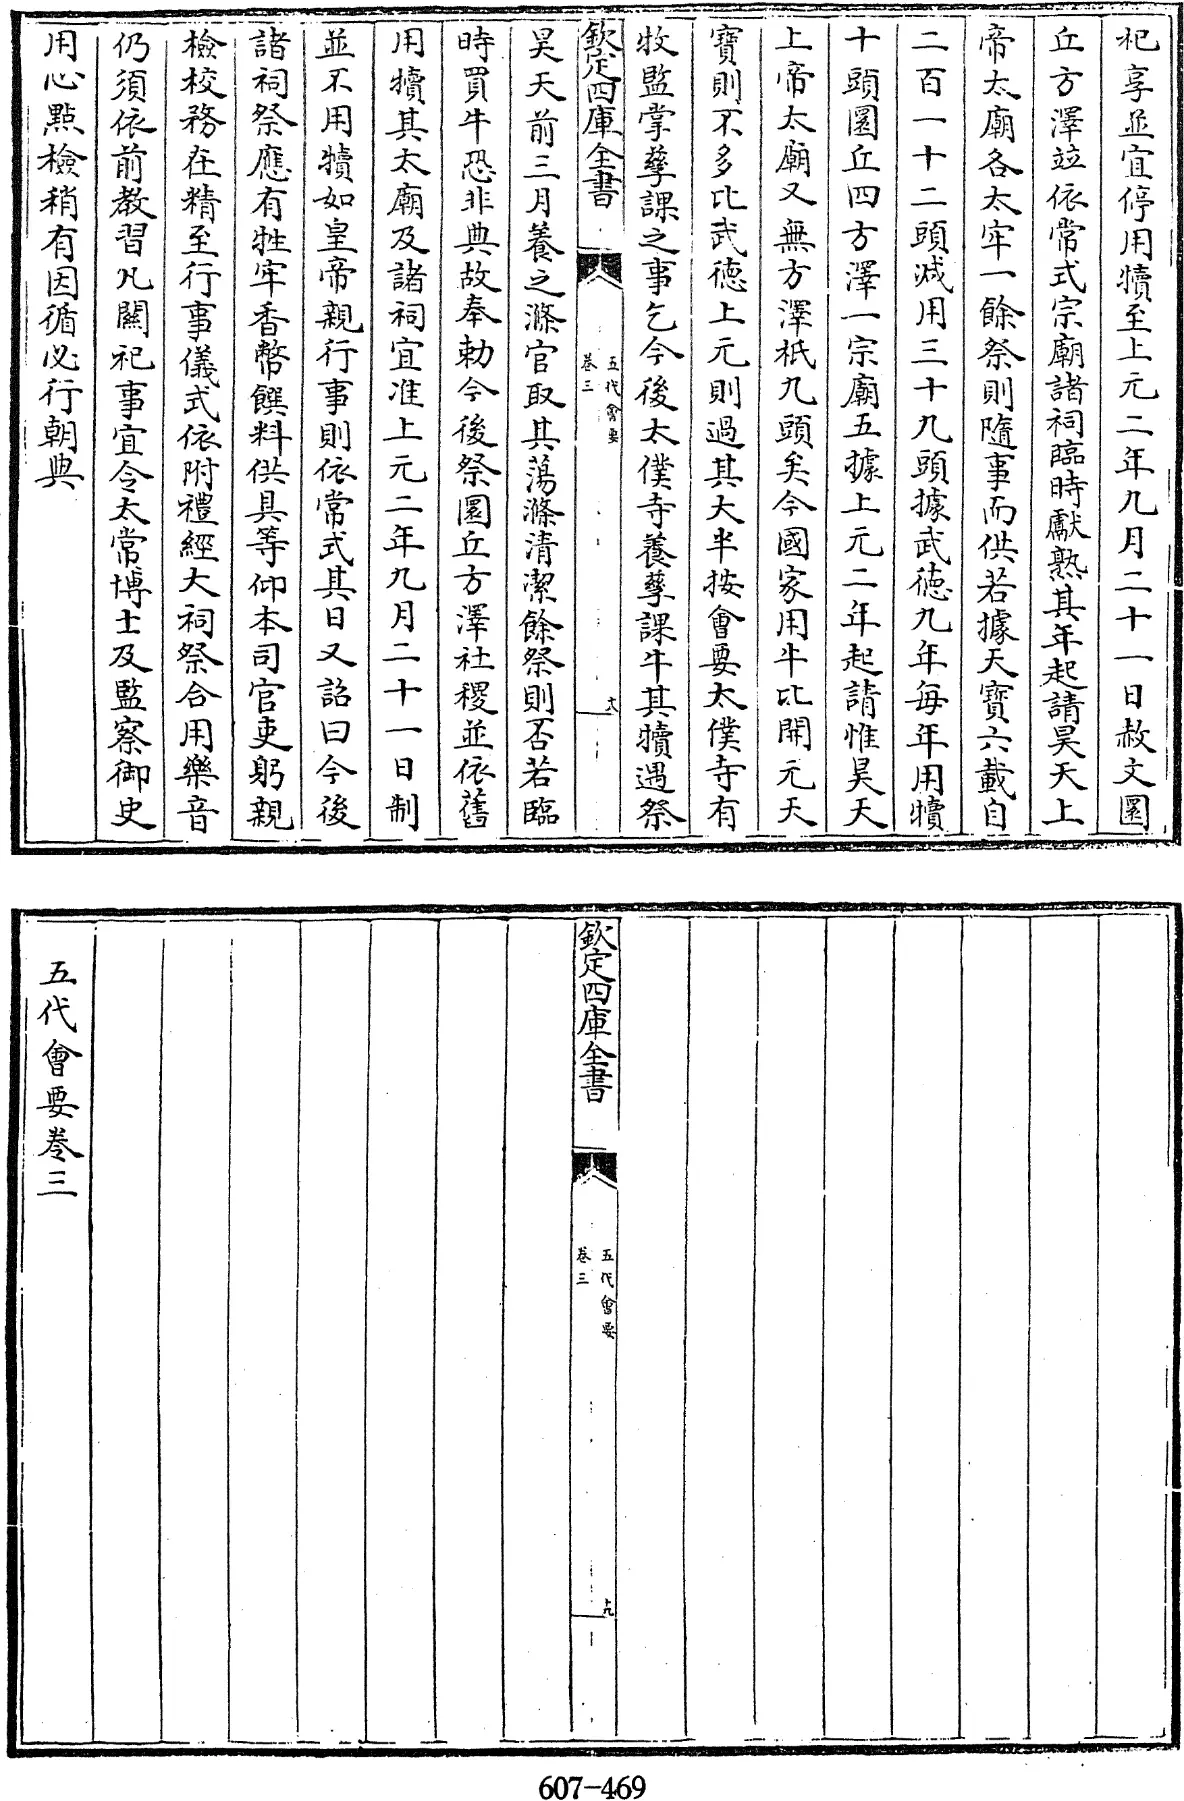 祀享並宜停用犢至上元二年九月二十一日赦文圜
丘方澤竝依常式宗廟諸祠臨時獻熟其年起請昊天上
帝太廟各太牢一餘祭則隨事而供若據天寶六載自
二百一十二頭減用三十九頭據武徳九年每年用犢
十頭圜丘四方澤一宗廟五據上元二年起請惟昊天
上帝太廟又無方澤祇九頭矣今國家用牛比開元天
寶則不多比武徳上元則過其大半按會要太僕寺有
牧監掌孳課之事乞今後太僕寺養孳課牛其犢遇祭
欽定四庫全書
五代會要
卷三
十八
昊天前三月養之滌宫取其蕩滌清潔餘祭則否若臨
時買牛恐非典故奉勅今後祭圜丘方澤社稷並依舊
用犢其太廟及諸祠宜准上元二年九月二十一日制
並不用犢如皇帝親行事則依常式其日又詔曰今後
諸祠祭應有牲牢香幣饌料供具等仰本司官吏躬親
檢校務在精至行事儀式依附禮經大祠祭合用樂音
仍須依前教習凡關祀事宜令太常博士及監察御史
用心點檢稍有因循必行朝典
欽定四庫全書
五代會要
卷三
十九
五代會要卷三
607-469